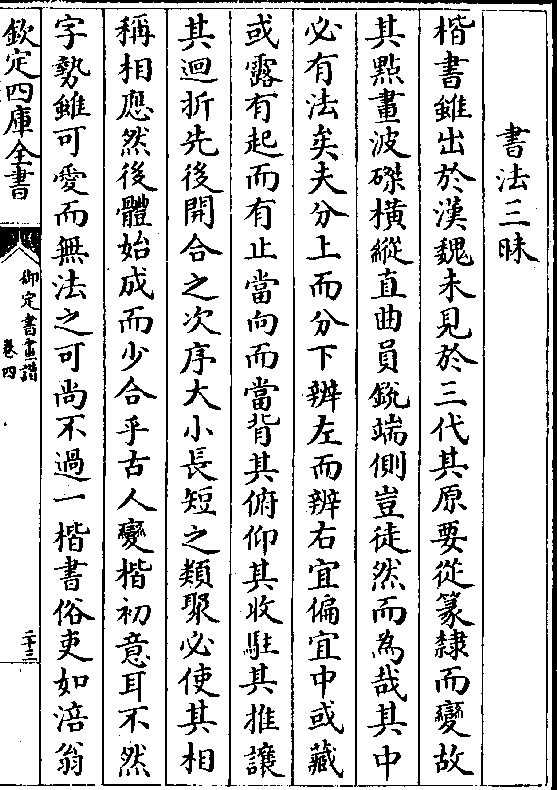 書法三昧
楷書雖出於漢魏未見於三代其原要從篆隷而變故
其點畫波磔橫縱直曲員銳端側豈徒然而為哉其中
必有法矣夫分上而分下辨左而辨右宜偏宜中或藏
或露有起而有止當向而當背其俯仰其收駐其推讓
其迴折先後開合之次序大小長短之類聚必使其相
稱相應然後體始成而少合乎古人變楷初意耳不然
字勢雖可愛而無法之可尚不過一楷書俗吏如涪翁
欽定四庫全書
御定書畫譜
卷四
二十三